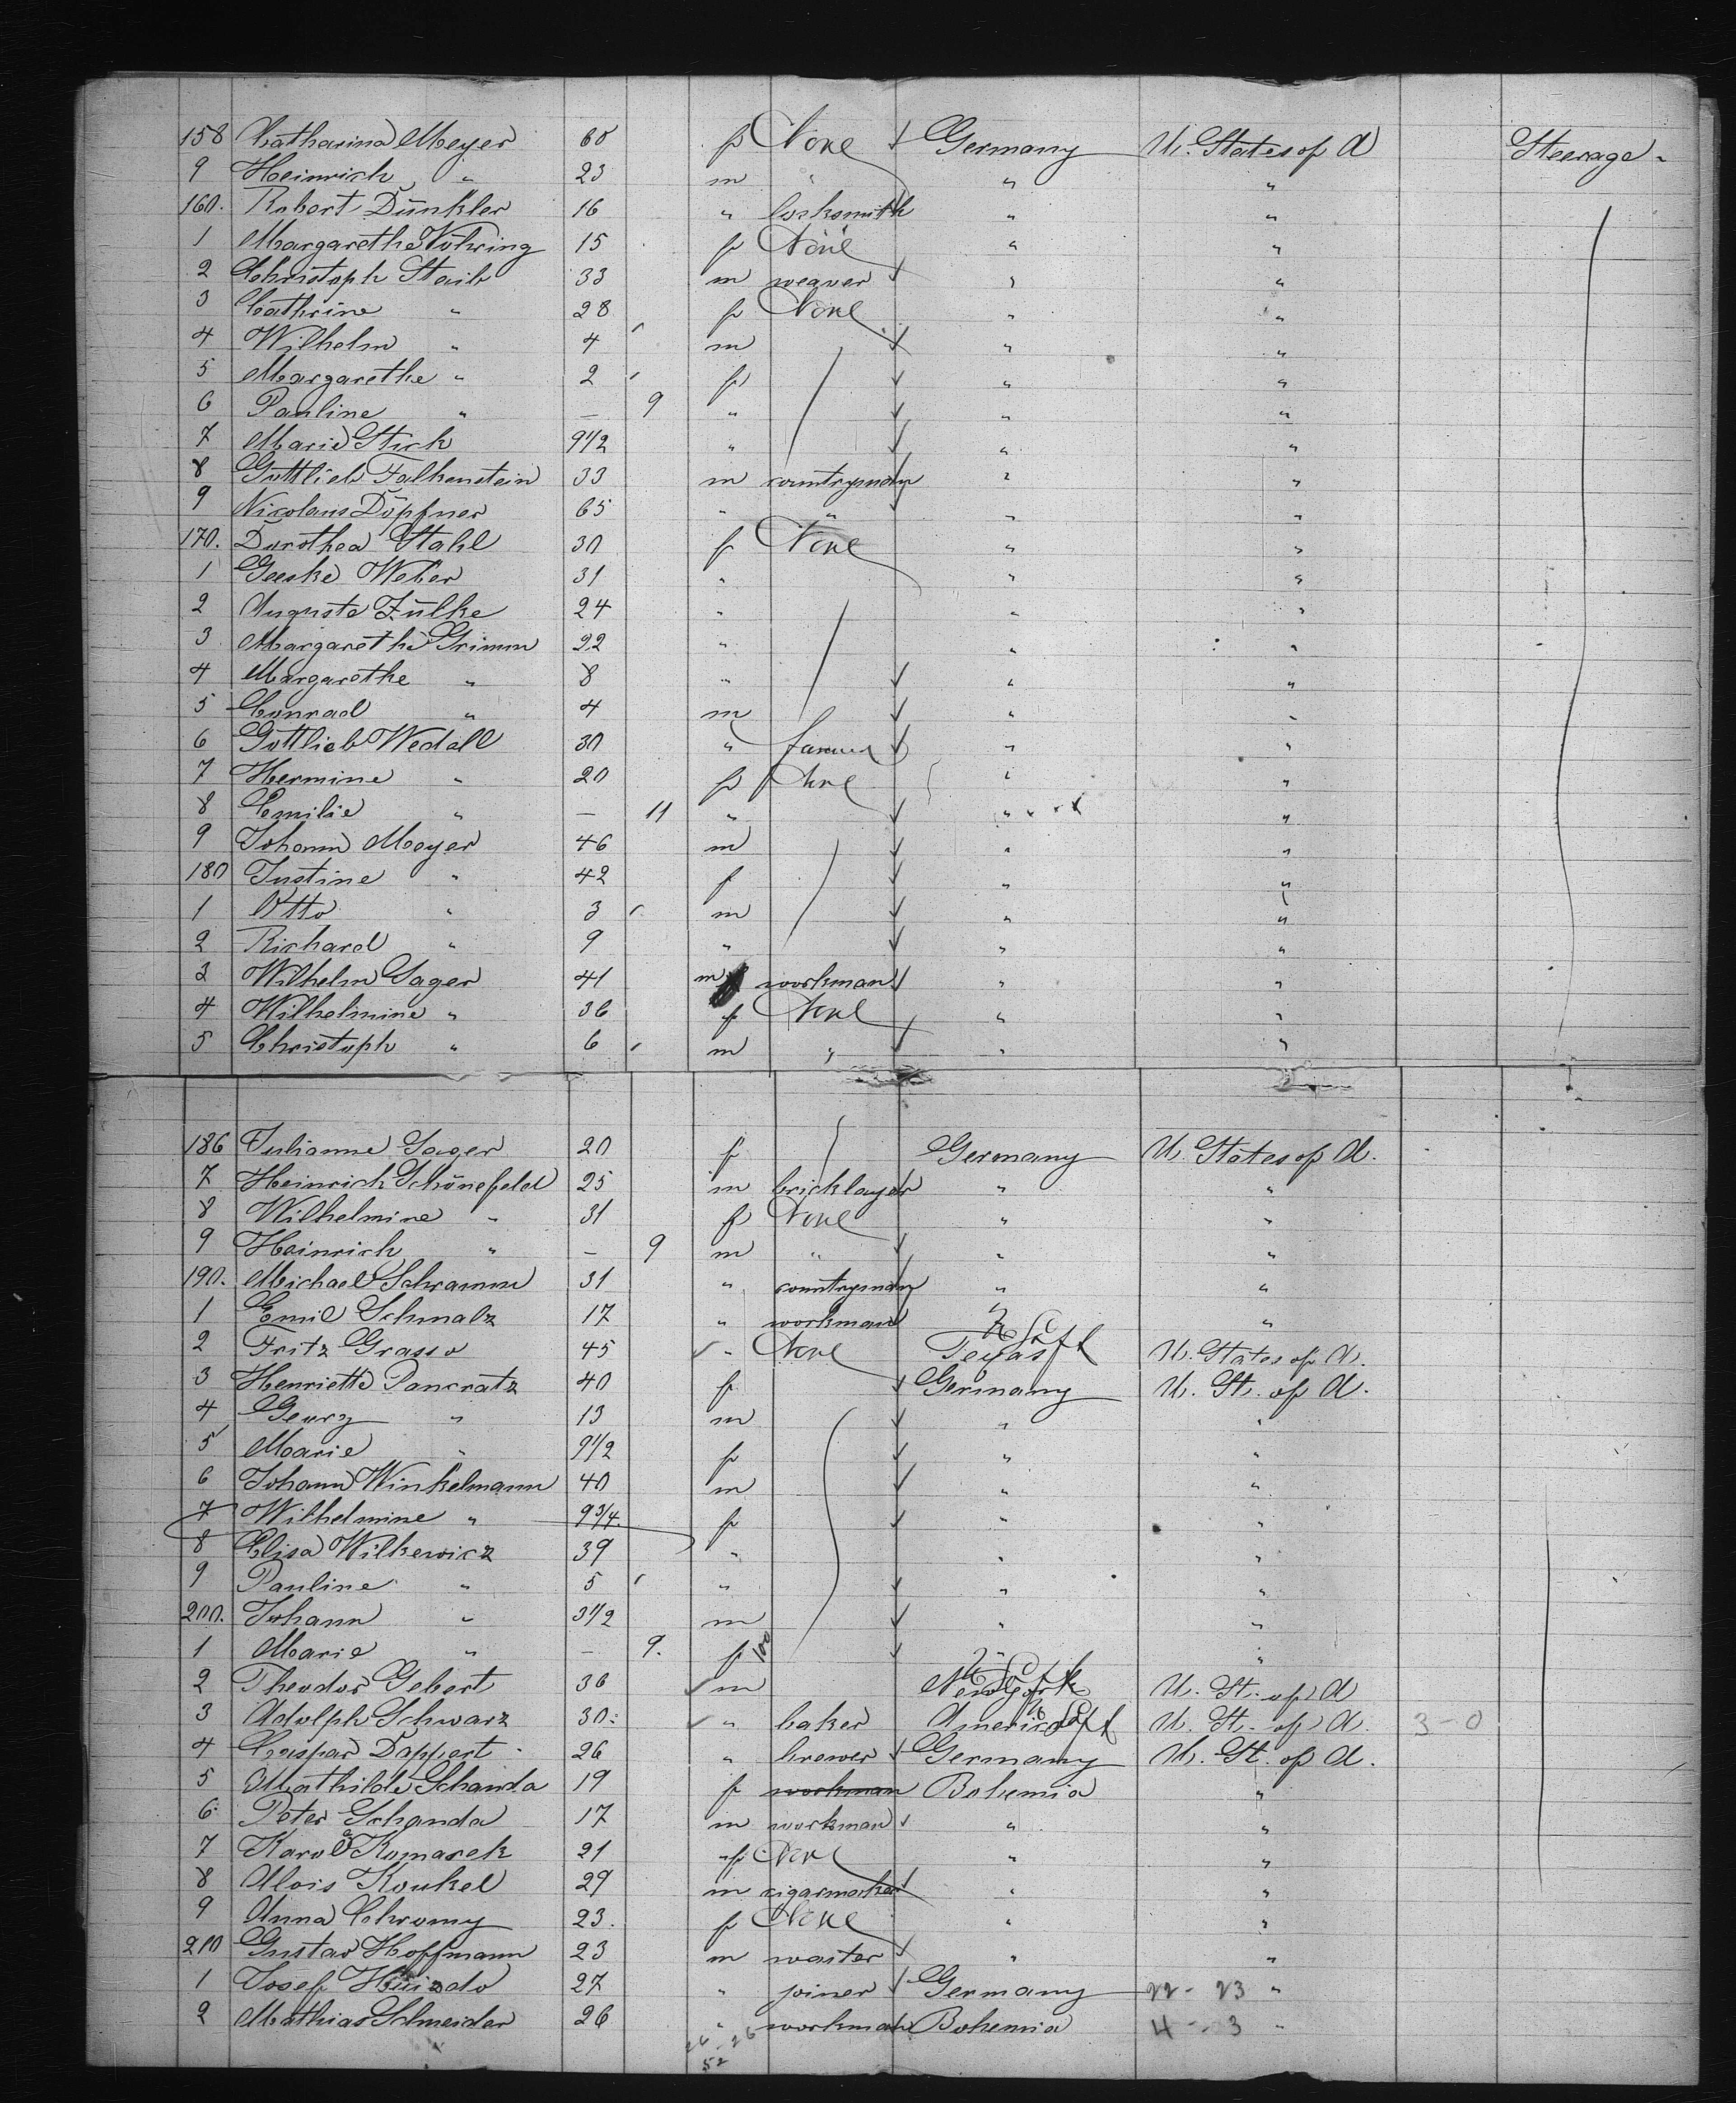 158 Catharina Meyer 60 f None Germany U. States of A Steerage
9 Heinrich " 23 m " " "
160. Robert Dünkler 16 " locksmith " "
1 Margarethe Vöhring 15 f None " "
2 Christoph Staib 33 m weaver " "
3 Cathrine " 28 f None " "
4 Wilhelm " 4 m " "
5 Margarethe " 2 f " "
6 Pauline " — 9 " " "
7 Marie Stick 9 1/2 " " "
8 Gottlieb Falkenstein 33 m countryman " "
9 Nicolaus Döpfner 65 " " " "
170. Dorothea Stahl 30 f None " "
1 Geeske Weber 31 " " "
2 Auguste Zülke 24 " " "
3 Margarethe Grimm 22 " " "
4 Margarethe " 8 " " "
5 Conrad " 4 m " "
6 Gottlieb Wedall 30 " farmer " "
7 Hermine " 20 f None " "
8 Emilie " — 11 " " "
9 Johann Meyer 46 m " "
180 Justine " 42 f " "
1 Otto " 3 m " "
2 Richard " 9 " " "
3 Wilhelm Sager 41 m workman " "
4 Wilhelmine " 36 f None " "
5 Christoph " 6 m " " "
186 Julianne Sager 20 f Germany U. States of A.
7 Heinrich Schönefeld 25 m bricklayer " "
8 Wilhelmine " 31 f None " "
9 Heinrich " — 9 m " " "
190. Michael Schramm 31 " countryman " "
1 Emil Schmalz 17 " workman " "
2 Fritz Grasso 45 " None Texas U. States of A.
3 Henriette Pancratz 40 f Germany U. St. of A.
4 Georg " 13 m " "
5 Marie " 9 1/2 f " "
6 Johann Winkelmann 40 m " "
7 Wilhelmine " 9 3/4 f " "
8 Elisa Wilkewicz 39 " " "
9 Pauline " 5 " " "
200. Johann " 3 1/2 m " "
1 Marie " — 9. f 100 " "
2 Theodor Gebert 36 m New York U. St. of A
3 Adolph Schwarz 30 " baker America U. St. of A. 3-0
4 Caspar Dappert 26 " brewer Germany U. St. of A.
5 Mathilde Schanda 19 f workman Bohemia "
6 Peter Schanda 17 m workman " "
7 Karola Komarek 21 f None " "
8 Alois Koukel 29 m cigarmaker " "
9 Anna Chromy 23. f None " "
210 Gustav Hoffmann 23 m waiter " "
1 Josef 27 " joiner Germany 22 - 23 "
2 Mathias Schneider 26 " workman Bohemia 4 - 3 "
26 - 26
52